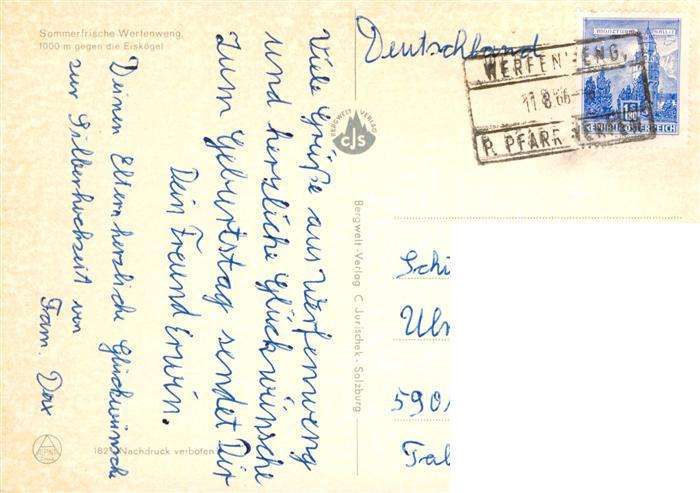 Sommerfrische Werfenweng,
1000 m gegen die Eiskögel
Viele Grüße aus Werfenweng
und herzliche Glückwünsche
zum Geburtstag sendet Dir
Dein Freund Erwin.
Deinen Eltern herzliche Glückwünsche
zur Silberhochzeit von
Fam. Dax
Deutschland
WERFENWENG,
11 8 66
P. PFARRWERFEN
REPUBLIK ÖSTERREICH
BERGWELT VERLAG
CJS
Bergwelt-Verlag C Jurischek - Salzburg
Schi
Ulr
590
Fal
182 Nachdruck verboten